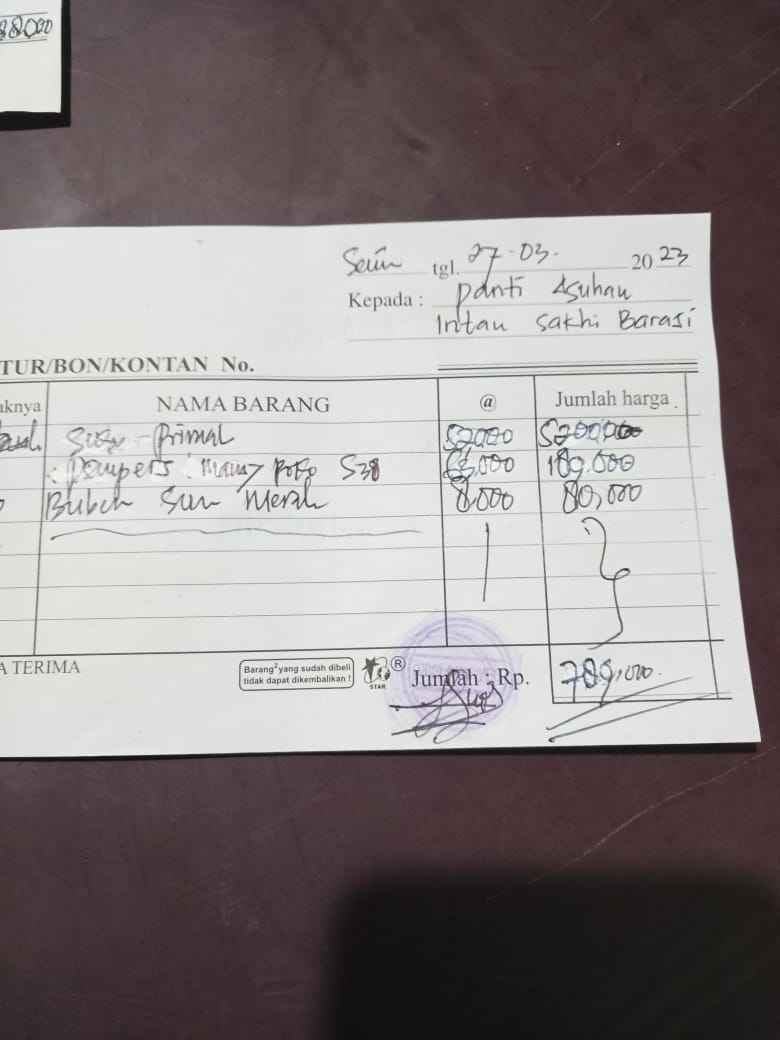 88000
Senin tgl. 27-03- 2023
Kepada : panti Asuhan
Intan sakhi Barasi
TUR/BON/KONTAN No.
aknya NAMA BARANG @ Jumlah harga
Susu - Primal 52000 520000
: Pempers : Many poko S38 63,000 189.000
Bubur Sun Merah 8.000 80,000
A TERIMA
Barang² yang sudah dibeli
tidak dapat dikembalikan !
STAR ®
Jumlah : Rp. 789,000.